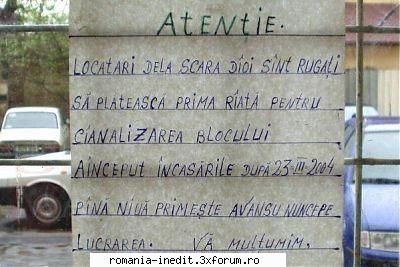 ATENTIE.
LOCATARI DELA SCARA DIOI SINT RUGAȚI
SĂ PLĂTEASCĂ PRIMA RIATĂ PENTRU
CIANALIZAREA BLOCULUI
AINCEPUT ÎNCASĂRILE DUPĂ 23-III-2004
PÎNĂ NIUĂ PRIMEȘTE AVANSU NUNCEPE
LUCRAREA. VĂ MULȚUMIM.
romania-inedit.3xforum.ro